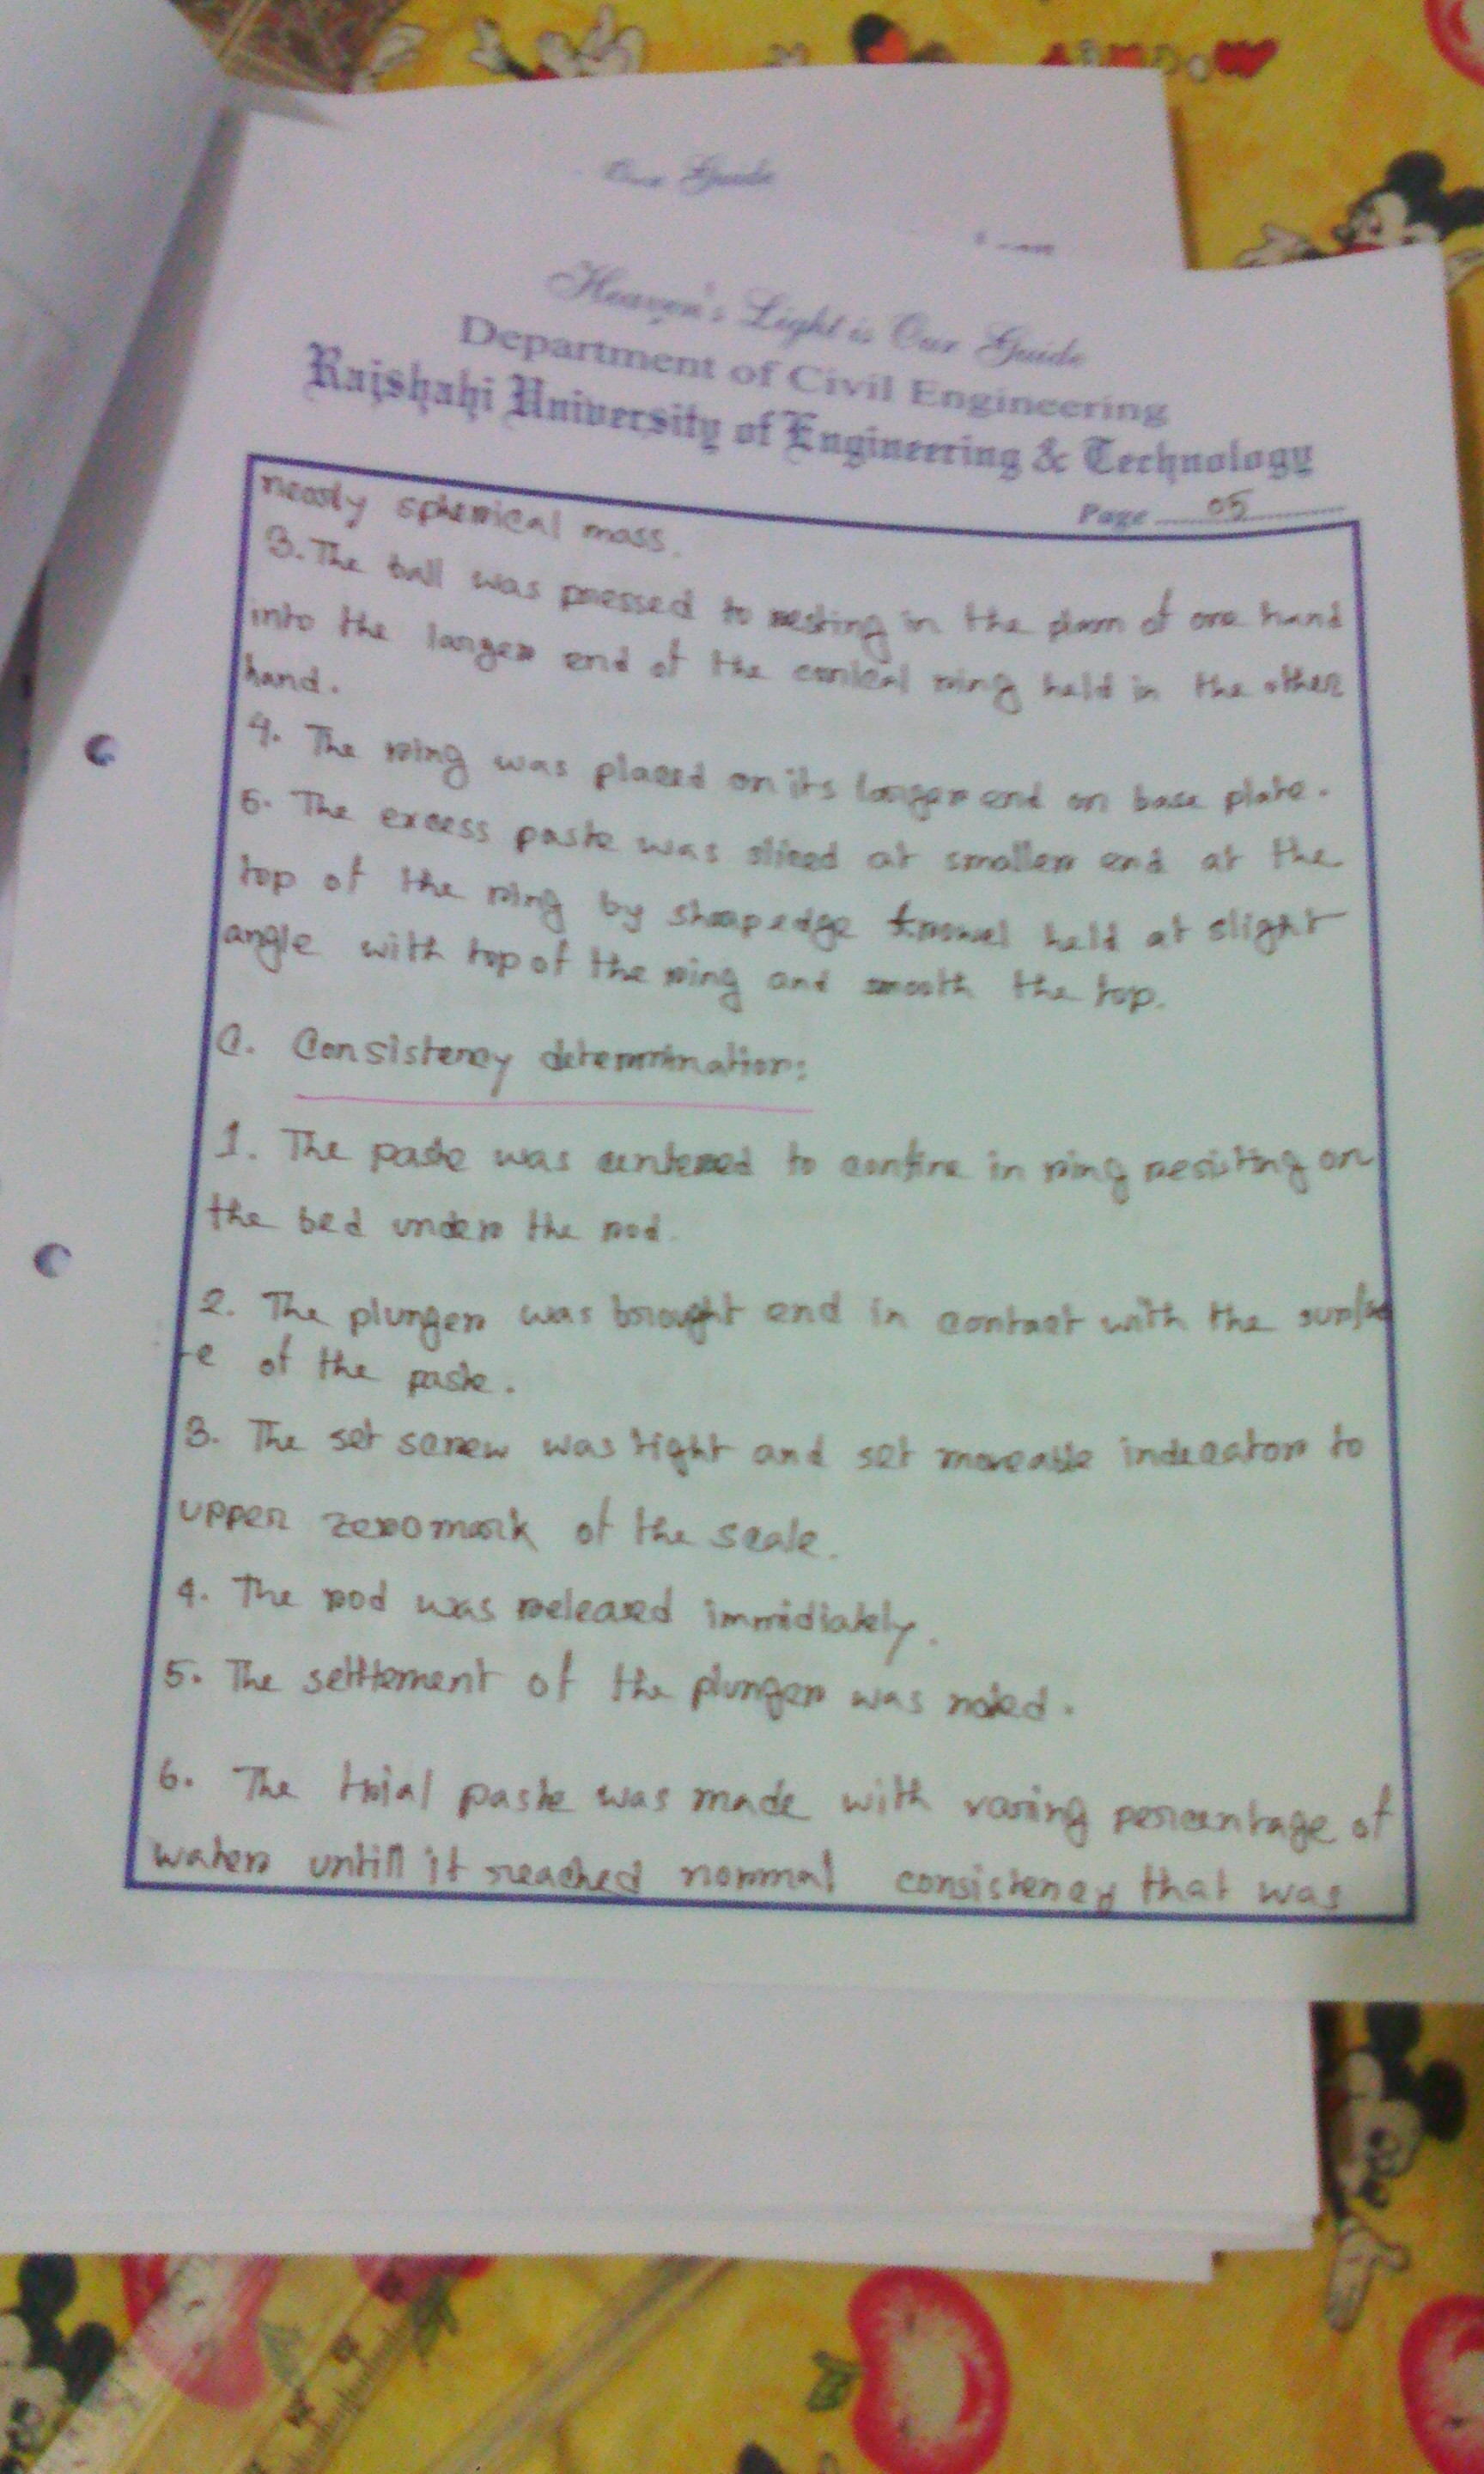 Our Guide
Heaven's Light is Our Guide
Department of Civil Engineering
Rajshahi University of Engineering & Technology
Page 05
nearly spherical mass.
3. The ball was pressed to resting in the plam of one hand
into the larger end of the conical ring held in the other
hand.
4. The ring was placed on its larger end on base plate.
5. The excess paste was sliced at smaller end at the
top of the ring by sharpedge trowel held at slight
angle with top of the ring and smooth the top.
C. Consistency determination:
1. The paste was centered to confine in ring resisting on
the bed under the rod.
2. The plunger was brought end in contact with the surfac
-e of the paste.
3. The set screw was tight and set moveable indecator to
upper zero mark of the scale.
4. The rod was released immidiately.
5. The settlement of the plunger was noted.
6. The trial paste was made with varing percentage of
water untill it reached normal consistency that was